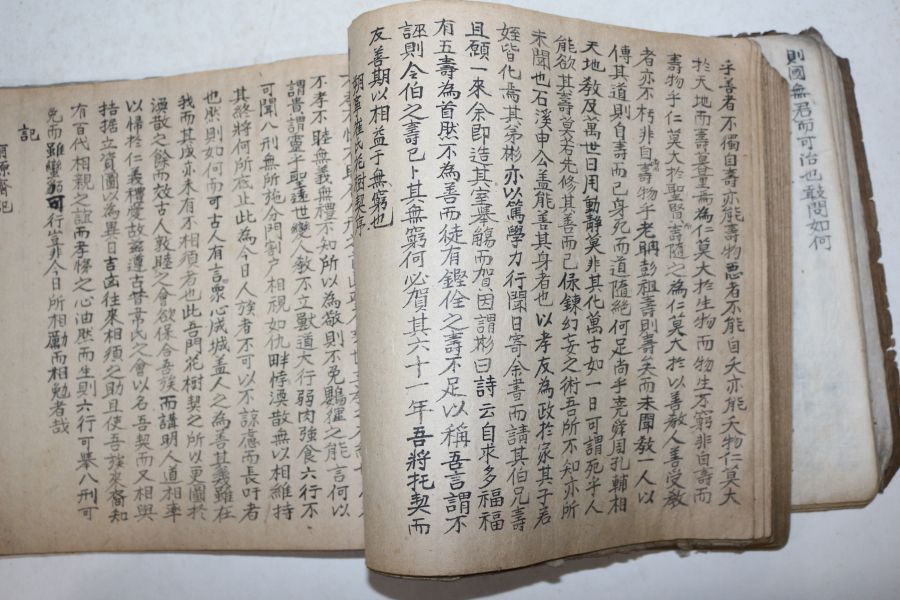 則國無君而可治也敢問如何
乎善者不獨自壽亦能壽物惡者不能自夭亦能夭物仁莫大
於天地而壽莫重焉為仁莫大於生物而物生不窮非自壽而
壽物乎仁莫大於聖賢壽隨之為仁莫大於以善教人善受教
者亦不朽非自壽物乎老聃彭祖壽則壽矣而未聞教一人以
傳其道則自壽而已身死而道隨絶何足尚乎堯舜周孔輔相
天地教及萬世日用動靜莫非其化萬古如一日可謂死乎人
能欲其壽莫若先修其善而已保鍊幻妄之術吾所不知亦所
未聞也石溪申公盖能善其身者也以孝友為政於家其子若
姪皆化焉其弟彬亦以篤學力行聞日寄余書而請其伯兄壽
且願一來余即造其室擧觴而賀因謂彬曰詩云自求多福福
有五壽為首然不為善而徒有鏗佺之壽不足以稱吾言謂不
誣則令伯之壽已卜其無窮何必賀其六十一年吾將托契而
友善期以相益于無窮也
崔氏花樹契序
不孝不睦無義無禮不知所以為敬則不免鸚猩之能言何以
謂貴謂靈乎聖遠世變人教不立獸道大行弱肉強食六行不
可聞八刑無所施分門割户相視如仇畔悖渙散無以相維持
其終將何所底止此為今日人族者不可以不諒慮而長吁者
也然則如何而可古人有言衆心成城盖人之為善其義雖在
我而其成亦未有不相須者也此吾門花樹契之所以更圖於
渙散之餘而效古人敦睦之會欲保合吾族而講明人道相率
以歸於仁義禮愛故玆遵古昔韋氏之會以名吾契而又相與
拮据立資圖以為異日吉凶往來相須之助且使吾族來裔知
有百代相親之誼而孝悌之心油然而生則六行可擧八刑可
免而雖蠻貊可行豈非今日所相勵而相勉者哉
記
齋記